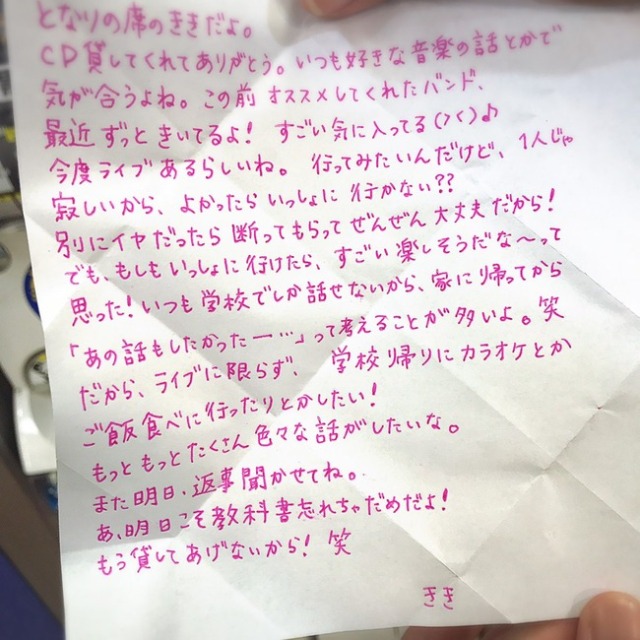 となりの席のききだよ。
CD貸してくれてありがとう。いつも好きな音楽の話とかで
気が合うよね。この前オススメしてくれたバンド、
最近ずっときいてるよ！すごい気に入ってる(><)♪
今度ライブあるらしいね。行ってみたいんだけど、1人じゃ
寂しいから、よかったらいっしょに行かない??
別にイヤだったら断ってもらってぜんぜん大丈夫だから！
でも、もしもいっしょに行けたら、すごい楽しそうだな〜って
思った！いつも学校でしか話せないから、家に帰ってから
「あの話もしたかったー…」って考えることが多いよ。笑
だから、ライブに限らず、学校帰りにカラオケとか
ご飯食べに行ったりとかしたい！
もっともっとたくさん色々な話がしたいな。
また明日、返事聞かせてね。
あ、明日こそ教科書忘れちゃだめだよ！
もう貸してあげないから！笑
きき